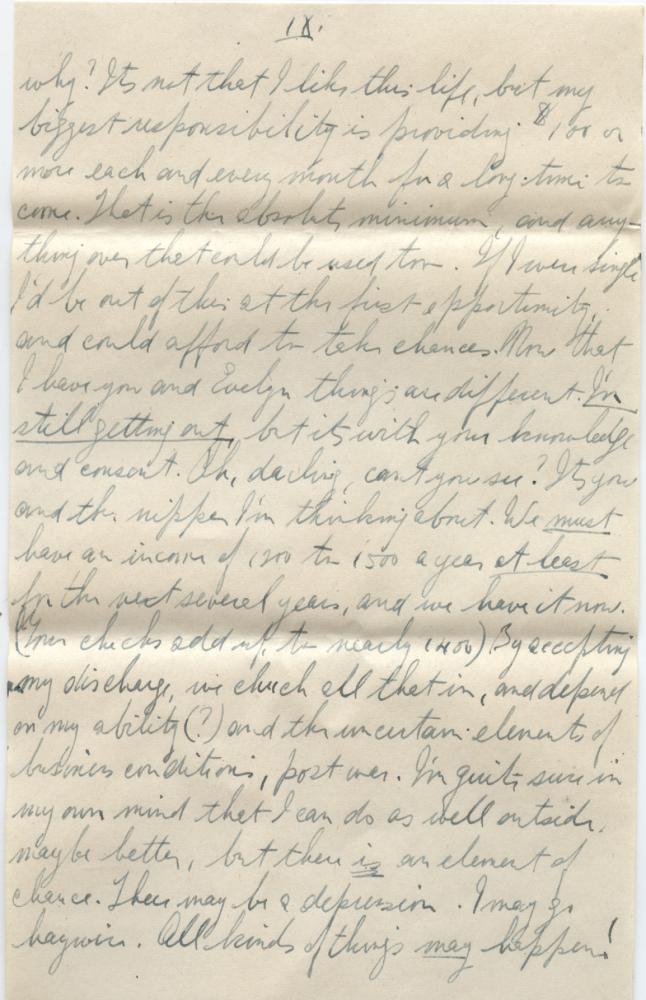 IX.
why? Its not that I like this life, but my
biggest responsibility is providing $100 or
more each and every month for a long time to
come. That is the absolute minimum, and any-
thing over that could be used too. If I were single
I'd be out of this at the first opportunity,
and could afford to take chances. Now that
I have you and Evelyn things are different. I'm
still getting out, but its with your knowledge
and consent. Oh, darling, can't you see? Its you
and the nipper I'm thinking about. We must
have an income of 1200 to 1500 a year at least
for the next several years, and we have it now.
(Your checks add up to nearly 1400) By accepting
my discharge, we chuck all that in, and depend
on my ability(?) and the uncertain elements of
business conditions, post war. I'm quite sure in
my own mind that I can do as well outside,
maybe better, but there is an element of
chance. There may be a depression. I may go
haywire. All kinds of things may happen!